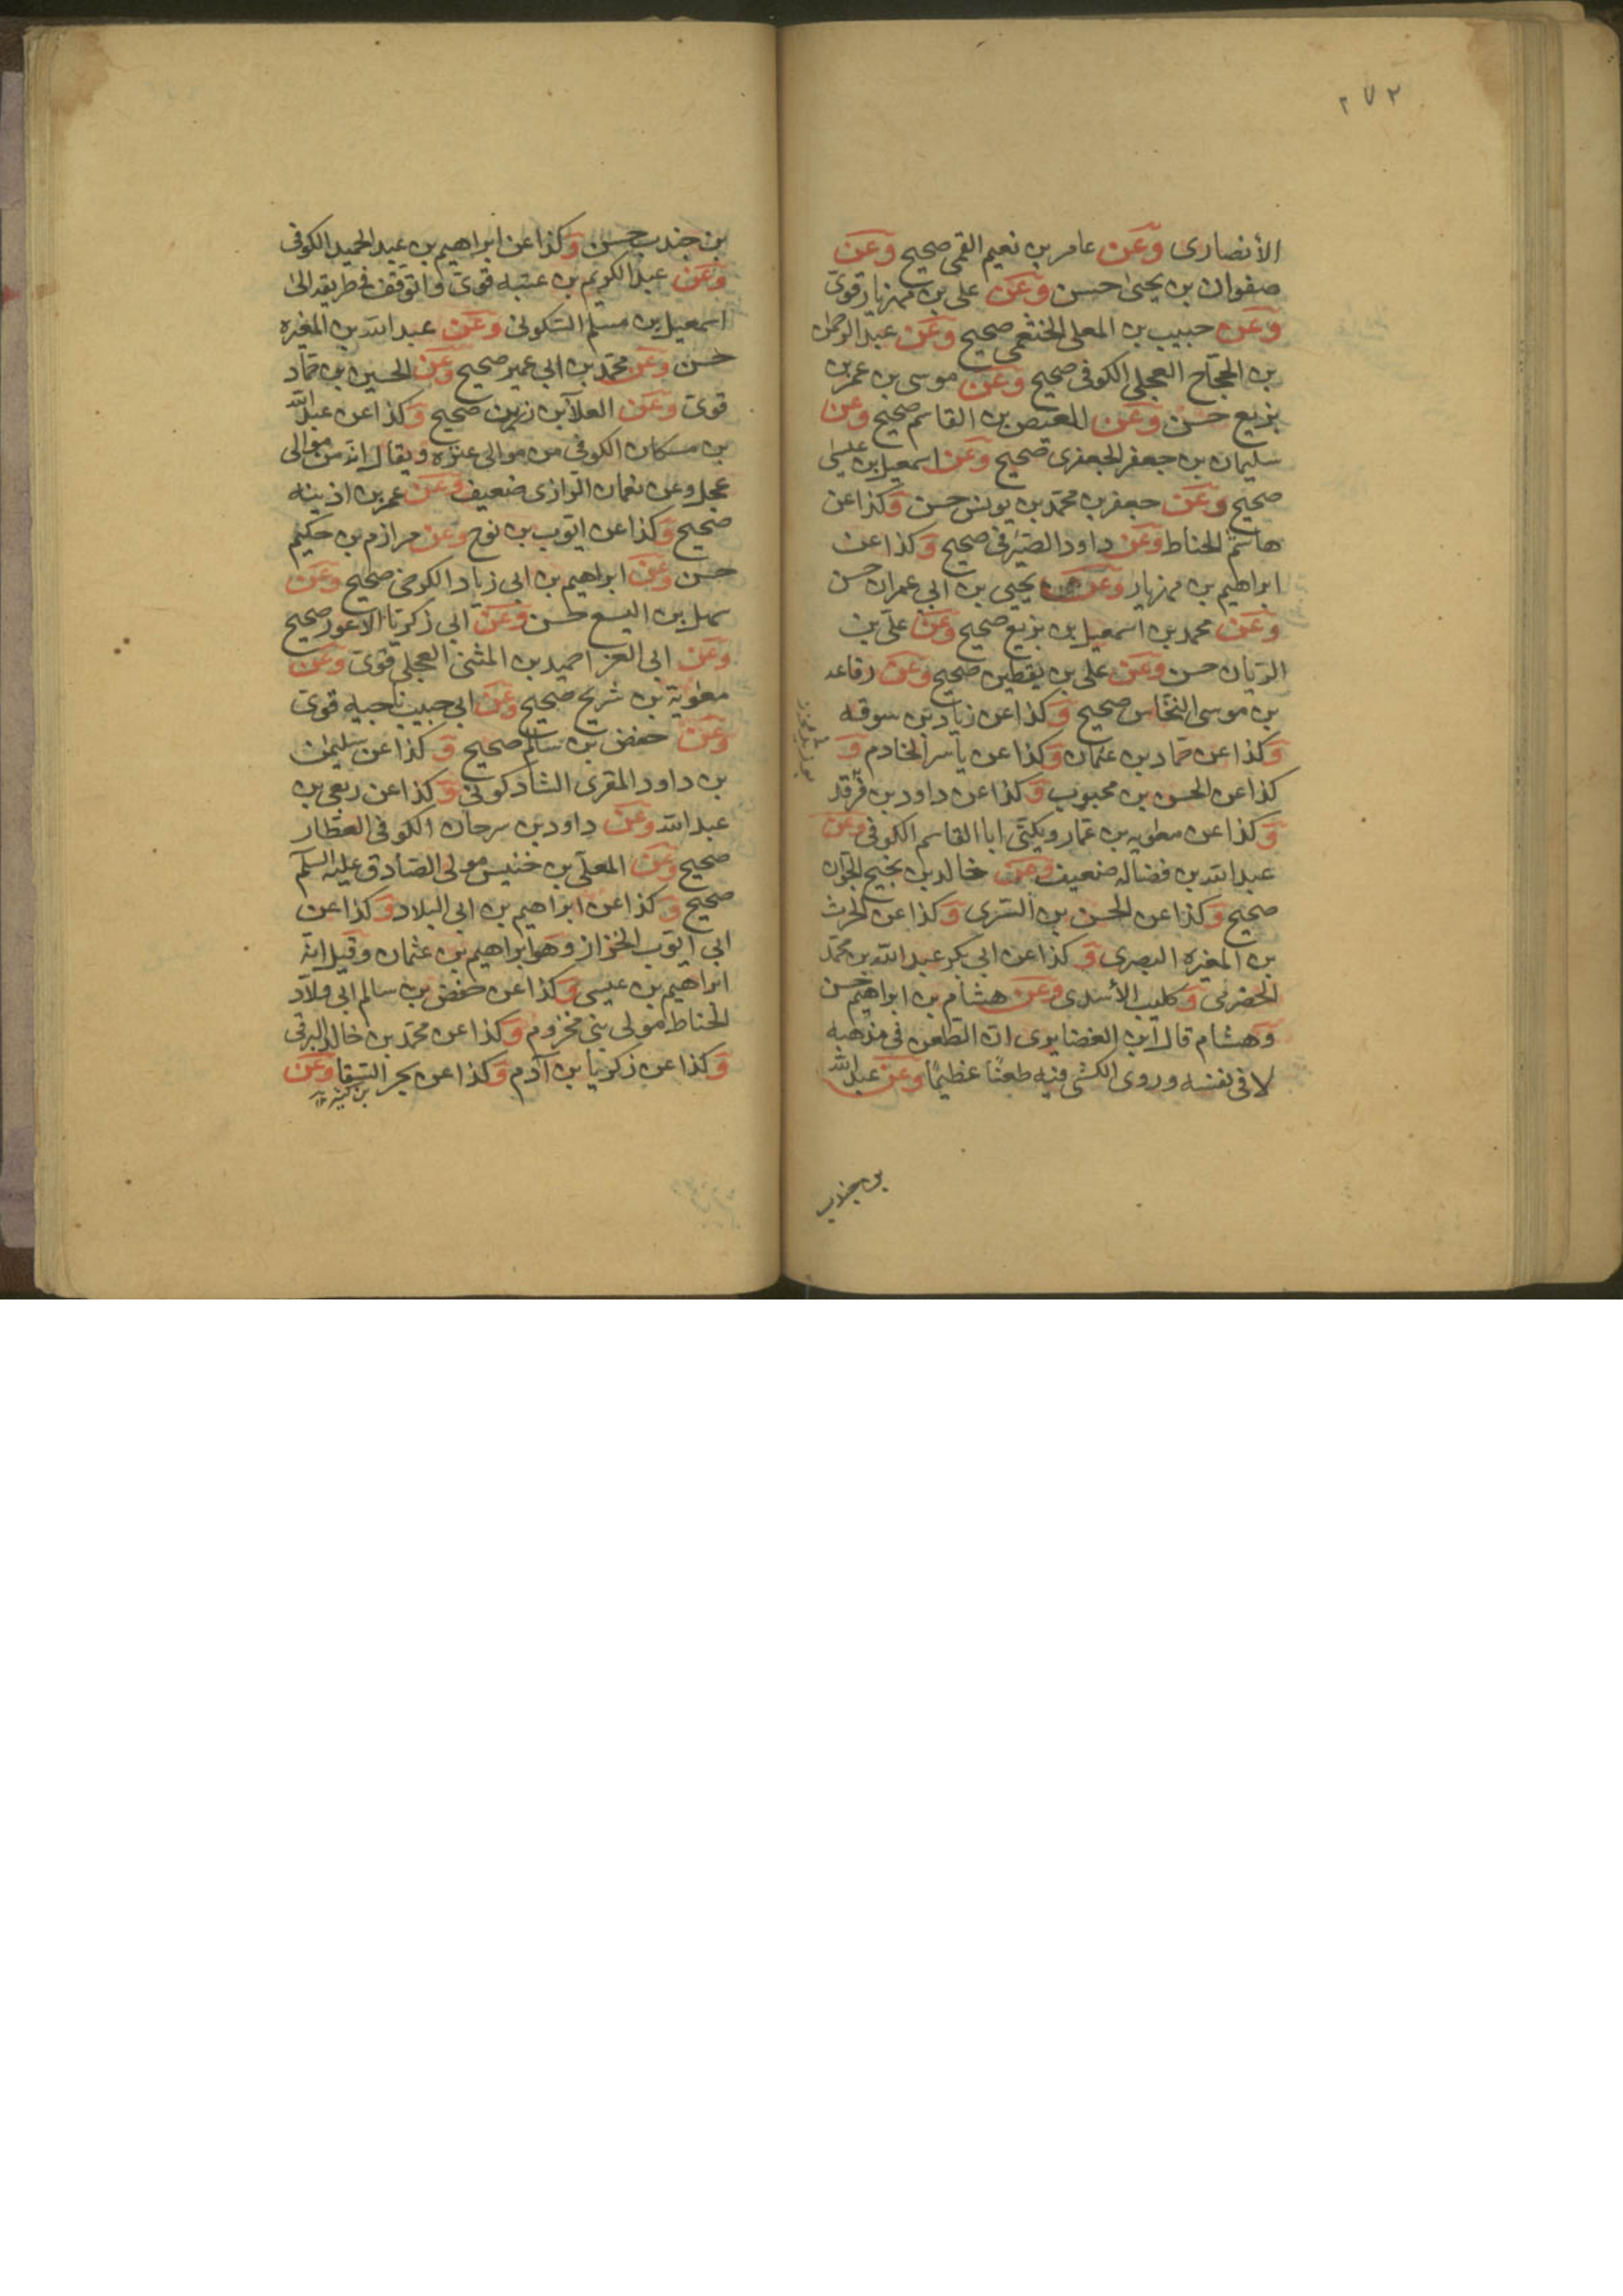 ٢٧٢
الأنصاري وعن عامر بن نعيم القمي صحيح وعن
صفوان بن يحيى حسن وعن علي بن مهزيار قوى
وعن حبيب بن المعلى الخثعمي صحيح وعن عبد الرحمن
بن الحجاج العجلي الكوفي صحيح وعن موسى بن عمر بن
بزيع حسن وعن العيص بن القاسم صحيح وعن
سليمان بن جعفر الجعفري صحيح وعن اسمعيل بن عيسى
صحيح وعن جعفر بن محمد بن يونس حسن وكذا عن
هاشم الحناط وعن داود الصيرفي صحيح وكذا عن
ابراهيم بن مهزيار وعن يحيى بن ابي عمران حسن
وعن محمد بن اسمعيل بن بزيع صحيح وعن علي بن
الريان حسن وعن علي بن يقطين صحيح وعن رفاعه
بن موسى النخاس صحيح وكذا عن زياد بن سوقه
وكذا عن حماد بن عثمان وكذا عن ياسر الخادم و
كذا عن الحسن بن محبوب وكذا عن داود بن فرقد
وكذا عن معويه بن عمار ويكنى ابا القاسم الكوفي وعن
عبد الله بن فضاله ضعيف وعن خالد بن نجيح الجوان
صحيح وكذا عن الحسن بن السري وكذا عن الحرث
بن المغيره البصري وكذا عن ابي بكر عبد الله بن محمد
الحضرمي وكليب الأسدي وعن هشام بن ابراهيم حسن
وهشام قال ابن الغضايري ان الطعن في مذهبه
لا في نفسه وروى الكشي فيه طعنا عظيما وعن عبد الله
بن جندب
بن جندب حسن وكذا عن ابراهيم بن عبد الحميد الكوفي
وعن عبد الكريم بن عتبه قوى واتوقف في طريقه الى
اسمعيل بن مسلم السكوني وعن عبد الله بن المغيره
حسن وعن محمد بن ابي عمير صحيح وعن الحسين بن حماد
قوى وعن العلآ بن رزين صحيح وكذا عن عبد الله
بن مسكان الكوفي من موالي عنزه ويقال انه من موالى
عجل وعن نعمان الرازي ضعيف وعن عمر بن اذينه
صحيح وكذا عن ايوب بن نوح وعن مرازم بن حكيم
حسن وعن ابراهيم بن ابي زياد الكرخي صحيح وعن
سهل بن اليسع حسن وعن ابي زكريا الاعور صحيح
وعن ابي العز احميد بن المثنى العجلي قوى وعن
معوية بن شريح صحيح وعن ابي حبيب ناجيه قوى
وعن حفص بن سالم صحيح وكذا عن سليمن
بن داود المقري الشادكوني وكذا عن ربعي بن
عبد الله وعن داود بن سرحان الكوفي العطار
صحيح وعن المعلى بن خنيس مولى الصادق عليه السلم
صحيح وكذا عن ابراهيم بن ابي البلاد وكذا عن
ابي ايوب الخزاز وهو ابراهيم بن عثمان وقيل انه
ابراهيم بن عيسى وكذا عن حفص بن سالم ابي ولاد
الحناط مولى بني مخزوم وكذا عن محمد بن خالد البرقي
وكذا عن زكريا بن آدم وكذا عن بحر السقا وعن